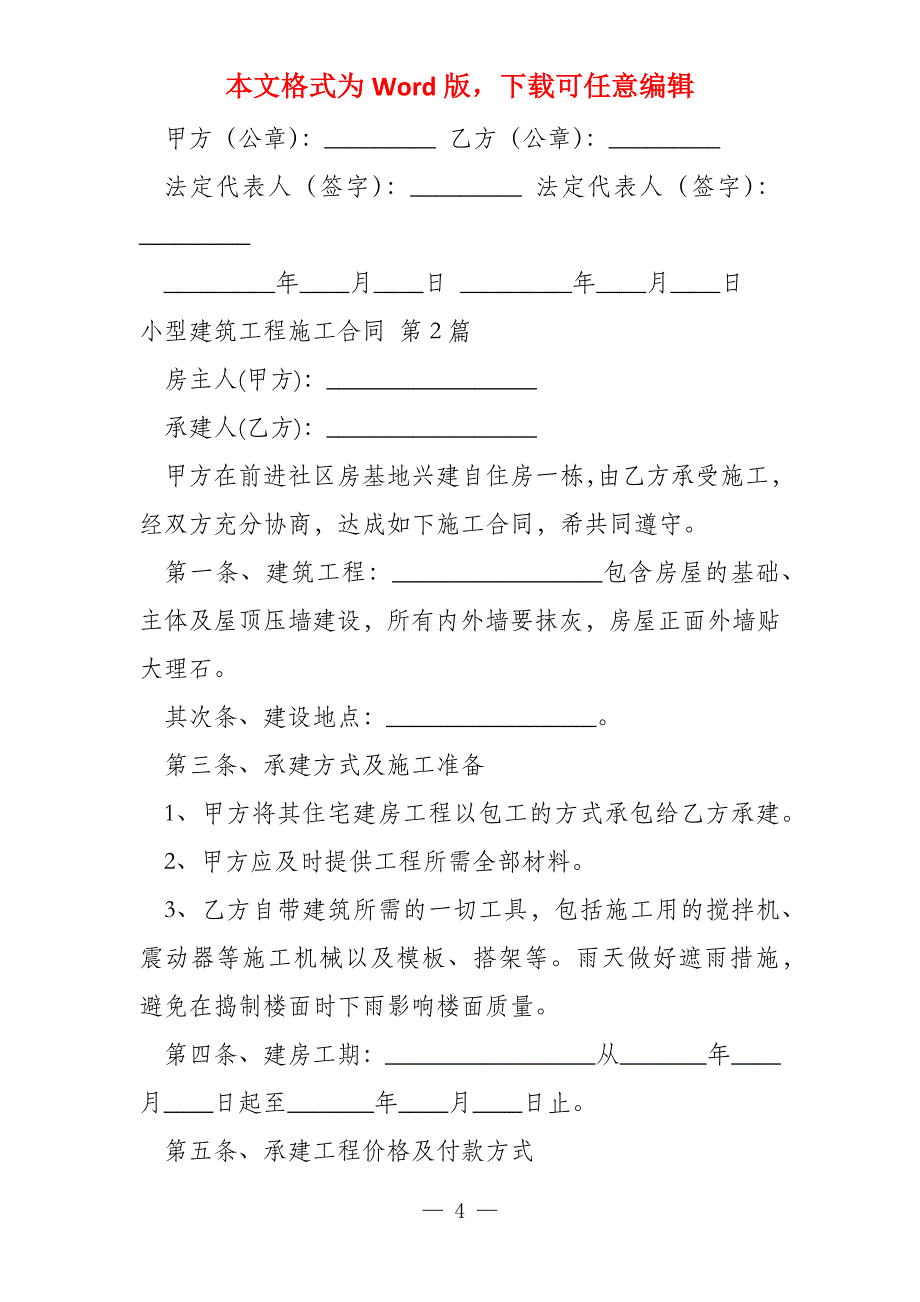 本文格式为 Word 版，下载可任意编辑
甲方（公章）：_________ 乙方（公章）：_________
法定代表人（签字）：_________ 法定代表人（签字）：
_________
_________年____月____日 _________年____月____日
小型建筑工程施工合同 第 2 篇
房主人(甲方)：_________________
承建人(乙方)：_________________
甲方在前进社区房基地兴建自住房一栋，由乙方承受施工，
经双方充分协商，达成如下施工合同，希共同遵守。
第一条、建筑工程：_________________包含房屋的基础、
主体及屋顶压墙建设，所有内外墙要抹灰，房屋正面外墙贴
大理石。
其次条、建设地点：_________________。
第三条、承建方式及施工准备
1、甲方将其住宅建房工程以包工的方式承包给乙方承建。
2、甲方应及时提供工程所需全部材料。
3、乙方自带建筑所需的一切工具，包括施工用的搅拌机、
震动器等施工机械以及模板、搭架等。雨天做好遮雨措施，
避免在捣制楼面时下雨影响楼面质量。
第四条、建房工期：_________________从_______年____
月____日起至_______年____月____日止。
第五条、承建工程价格及付款方式
— 4 —